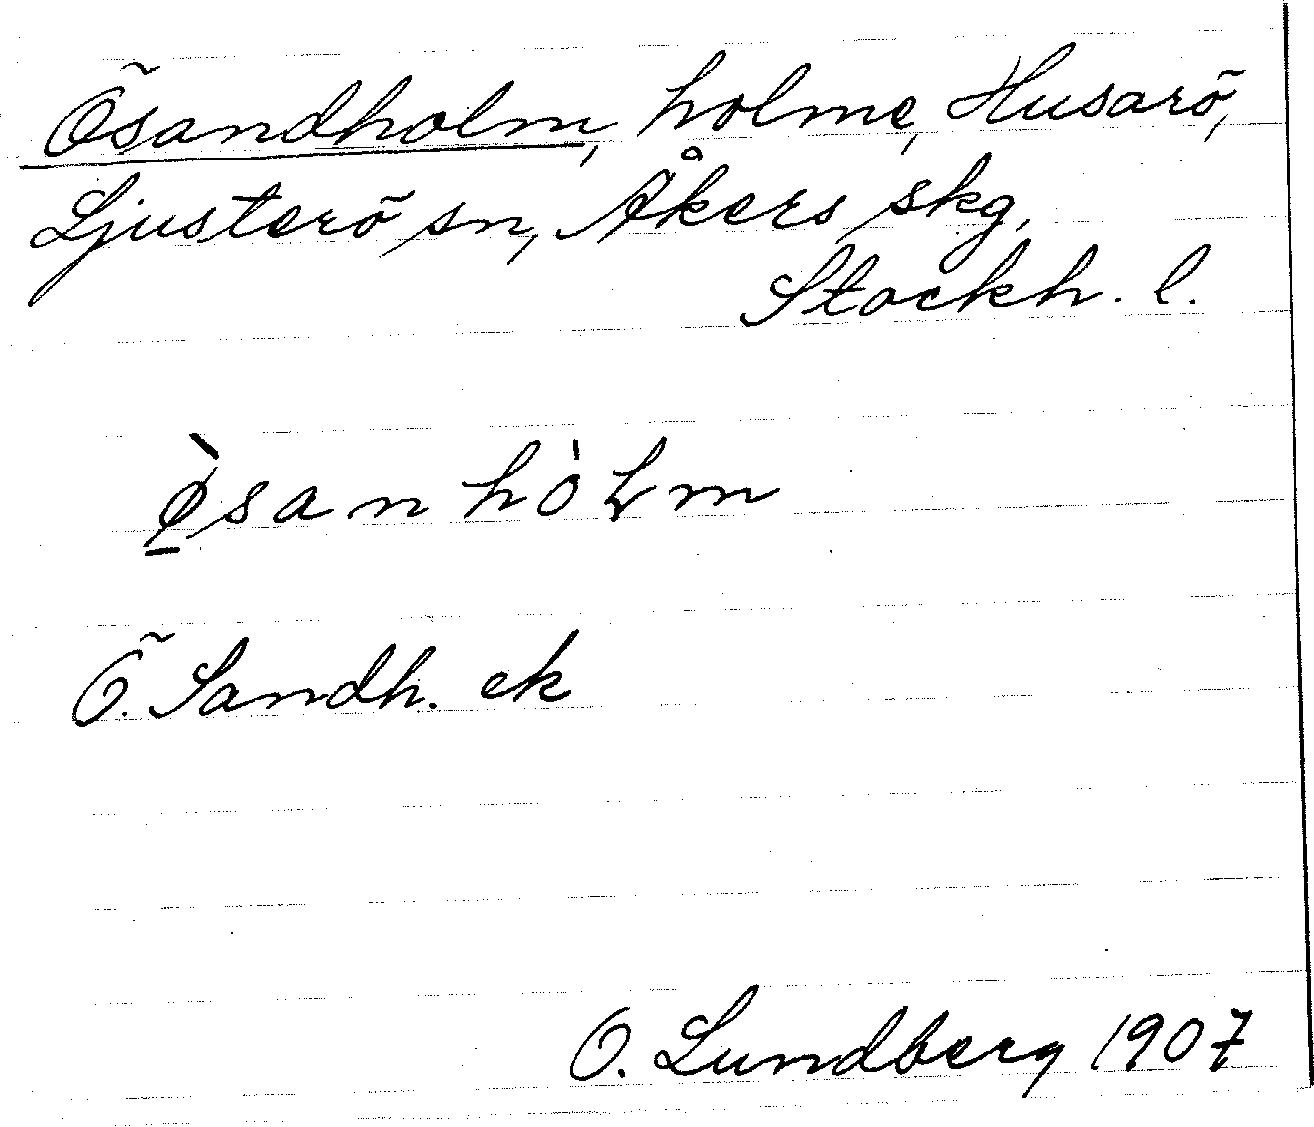 Ösandholm, holme, Husarö,
Ljusterö sn, Åkers skg,
Stockh. l.
ø̱̀sanhòlm
Ö. Sandh. ek
O. Lundberg 1907